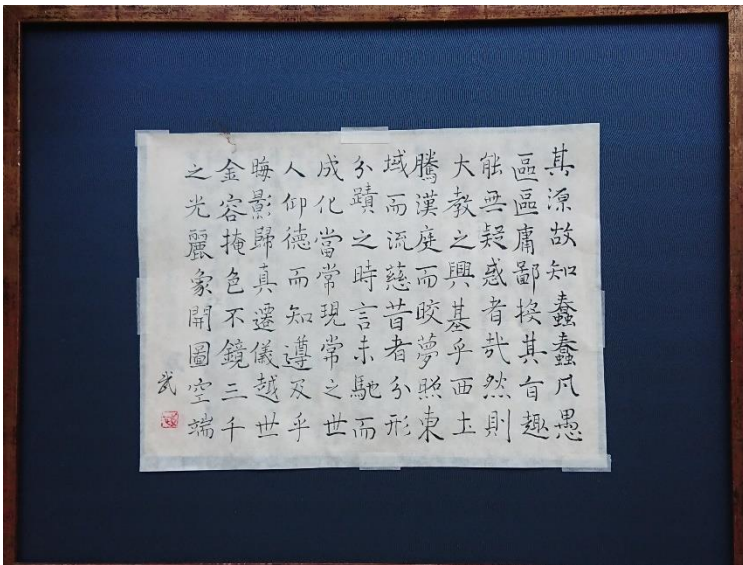 其源故知蠢蠢凡愚
區區庸鄙投其旨趣
能無疑惑者哉然則
大教之興基乎西土
騰漢庭而皎夢照東
域而流慈昔者分形
分蹟之時言未馳而
成化當常現常之世
人仰德而知遵及乎
晦影歸真遷儀越世
金容掩色不鏡三千
之光麗象開圖空端
武